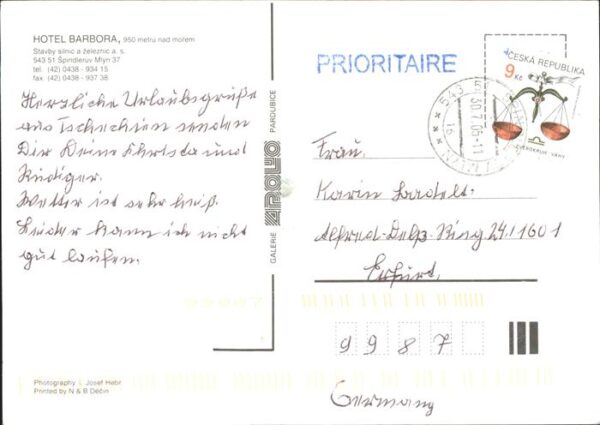 HOTEL BARBORA, 950 metru nad mořem
Stavby silnic a železnic a. s.
543 51 Špindlerův Mlýn 37
tel. (42) 0438 - 934 15
fax (42) 0438 - 937 38
Herzliche Urlaubsgrüße
aus Tschechien senden
Dir Deine Christa und
Rüdiger.
Wetter ist sehr heiß.
Leider kann ich nicht
gut laufen.
Photography J. Josef Hebr
Printed by N & B Děčín
GALERIE APOLLO PARDUBICE
PRIORITAIRE
ČESKÁ REPUBLIKA
9 Kč
ZVĚROKRUH - VÁHY
Frau
Karin
Alfred-Delp-Ring 24/1601
Erfurt.
9 9 8 7
Germany